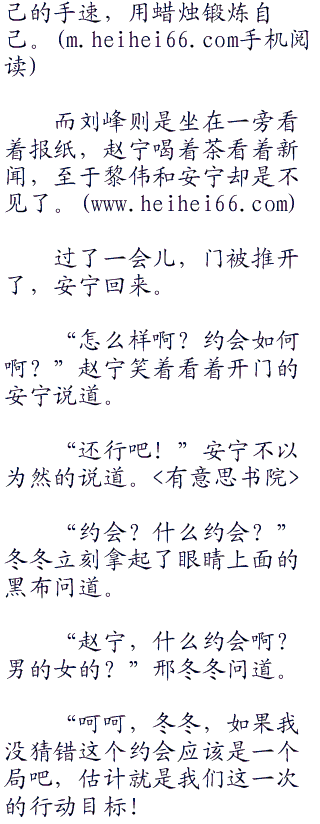 己的手速，用蜡烛锻炼自
己。(m.heihei66.com手机阅
读)
而刘峰则是坐在一旁看
着报纸，赵宁喝着茶看着新
闻，至于黎伟和安宁却是不
见了。(www.heihei66.com)
过了一会儿，门被推开
了，安宁回来。
“怎么样啊？约会如何
啊？”赵宁笑着看着开门的
安宁说道。
“还行吧！”安宁不以
为然的说道。<有意思书院>
“约会？什么约会？”
冬冬立刻拿起了眼睛上面的
黑布问道。
“赵宁，什么约会啊？
男的女的？”邢冬冬问道。
“呵呵，冬冬，如果我
没猜错这个约会应该是一个
局吧，估计就是我们这一次
的行动目标！